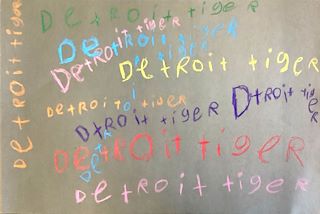 DetRoit tigeR
DetRoit tigeR
DetRoit tigeR
DetRoit tigeR
DetRoit tigeR
DetRoit tigeR
DtRoit tigeR
DtRoit tigeR
DetRoit tigeR
DetRoit tigeR